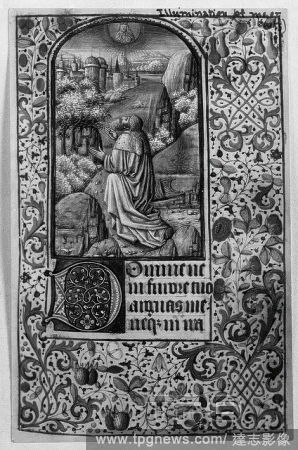 Illumination
Domine ne
in furore tuo
arguas me
neqz in ira
www.tpgnews.com / 達志影像